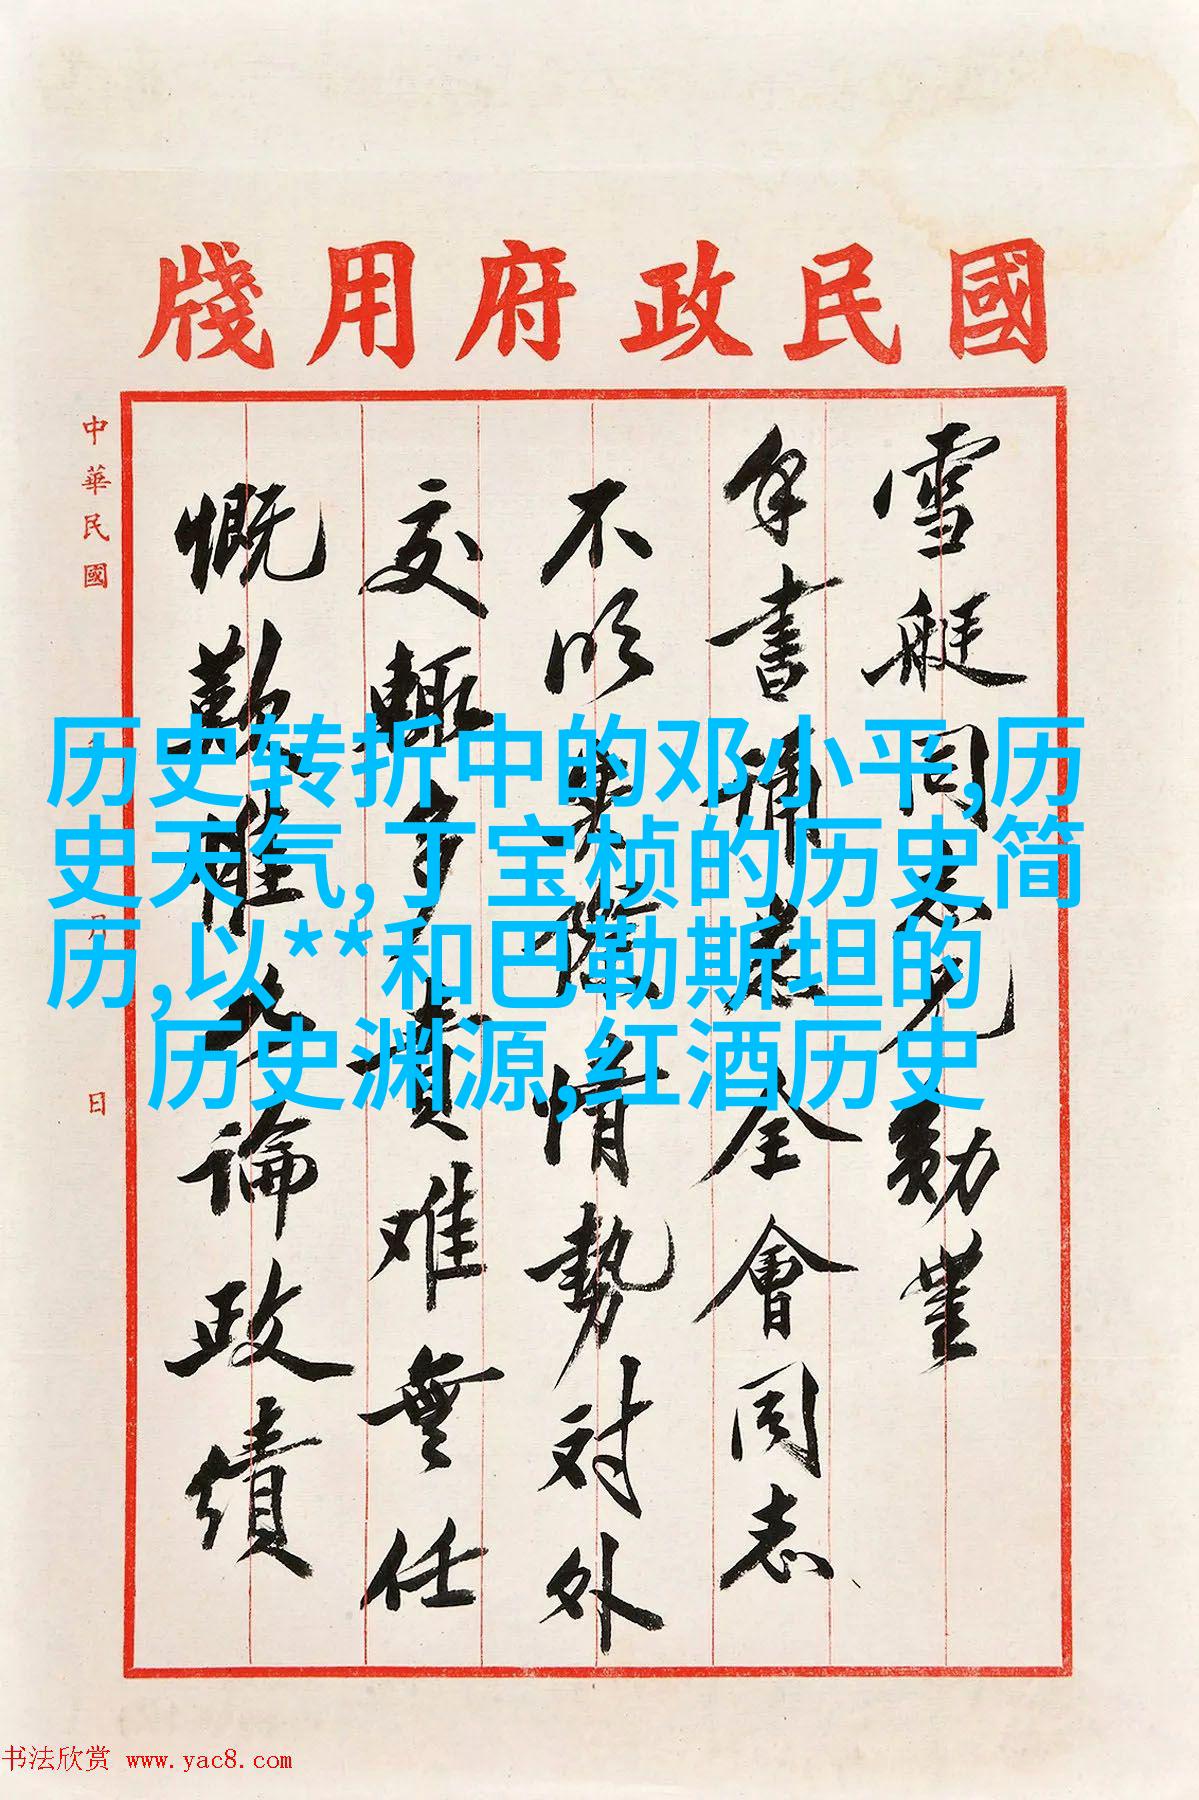 國民政府用牋
雪艇同志兄勛豐
手書誦悉全會同志
不明實際情勢對外
交輒多責难無任
慨歎惟 論政績
中華民國 月 日
历史转折中的邓小平,历
史天气,丁宝桢的历史简
历,以**和巴勒斯坦的
历史渊源,红酒历史
书法欣赏 www.yac8.com